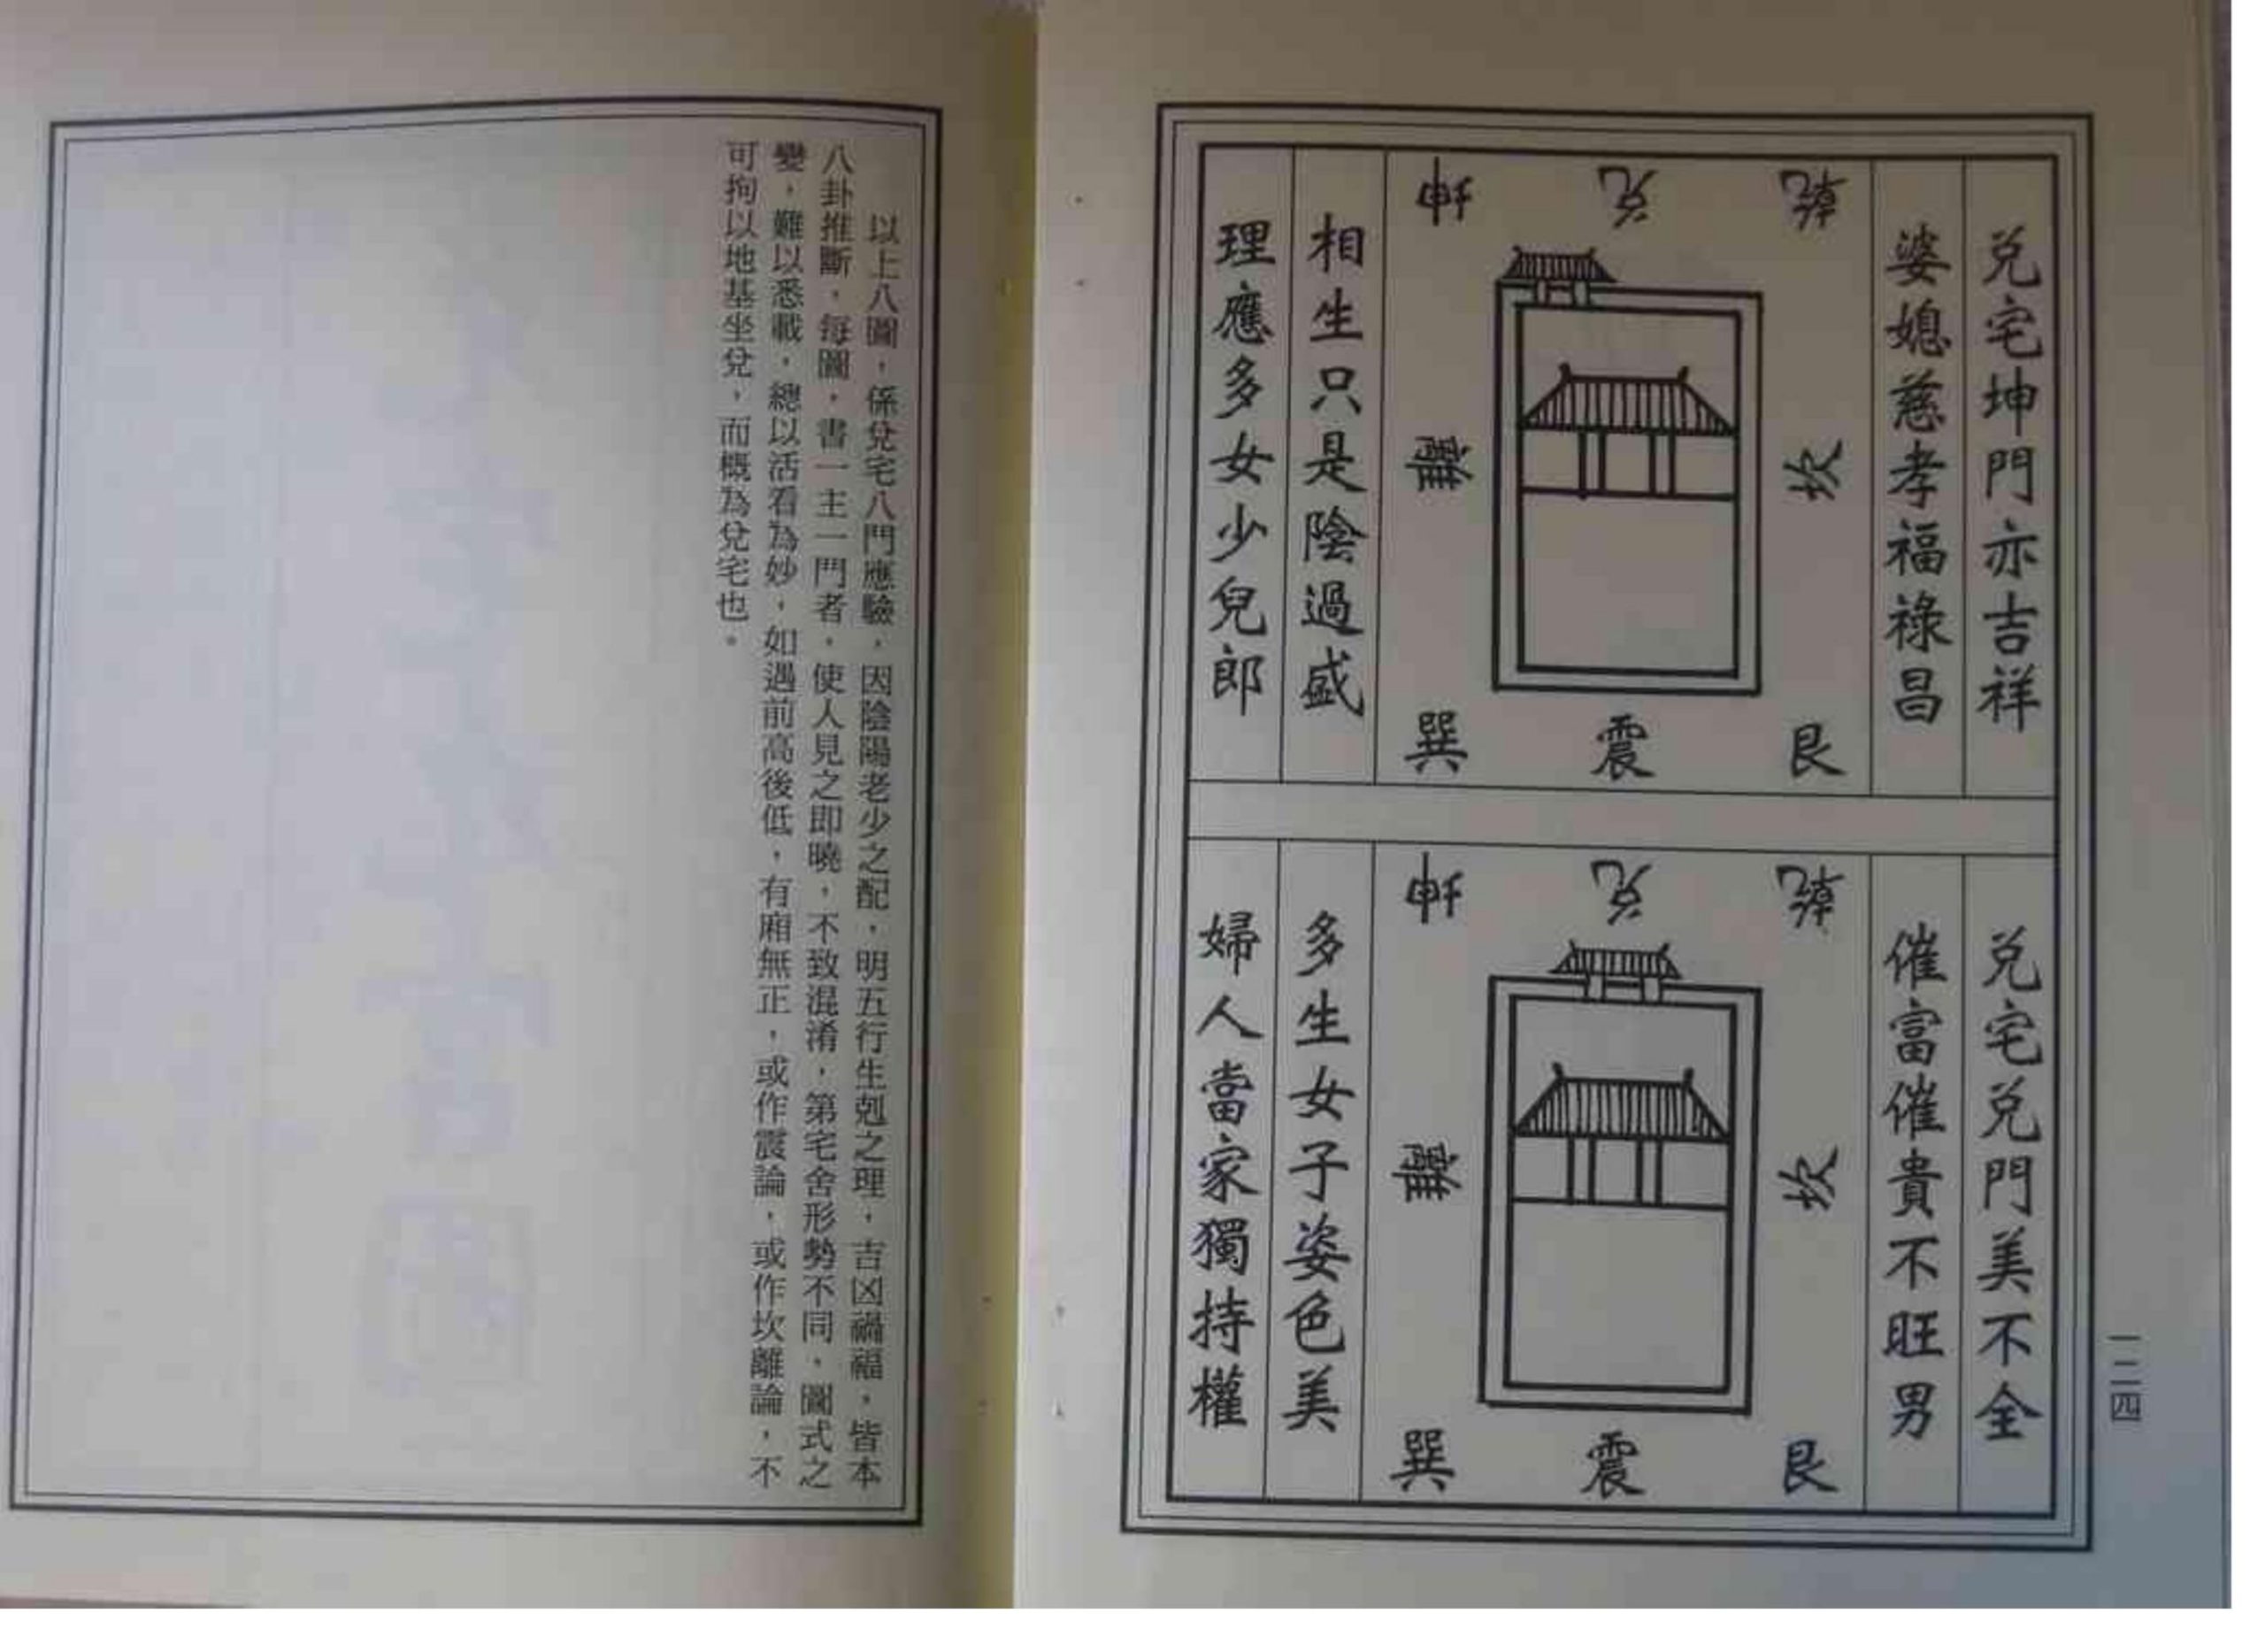 兑宅坤門亦吉祥
婆媳慈孝福祿昌
乾
兑
坤
坎
離
艮
震
巽
相生只是陰過盛
理應多女少兒郎
兑宅兑門美不全
催富催貴不旺男
乾
兑
坤
坎
離
艮
震
巽
多生女子姿色美
婦人當家獨持權
一二四
以上八圖，係兌宅八門應驗，因陰陽老少之配，明五行生剋之理，吉凶禍福，皆本
八卦推斷，每圖，書一主一門者，使人見之即曉，不致混淆，第宅舍形勢不同，圖式之
變，難以悉載，總以活看為妙，如遇前高後低，有廂無正，或作震論，或作坎離論，不
可拘以地基坐兌，而概為兌宅也。